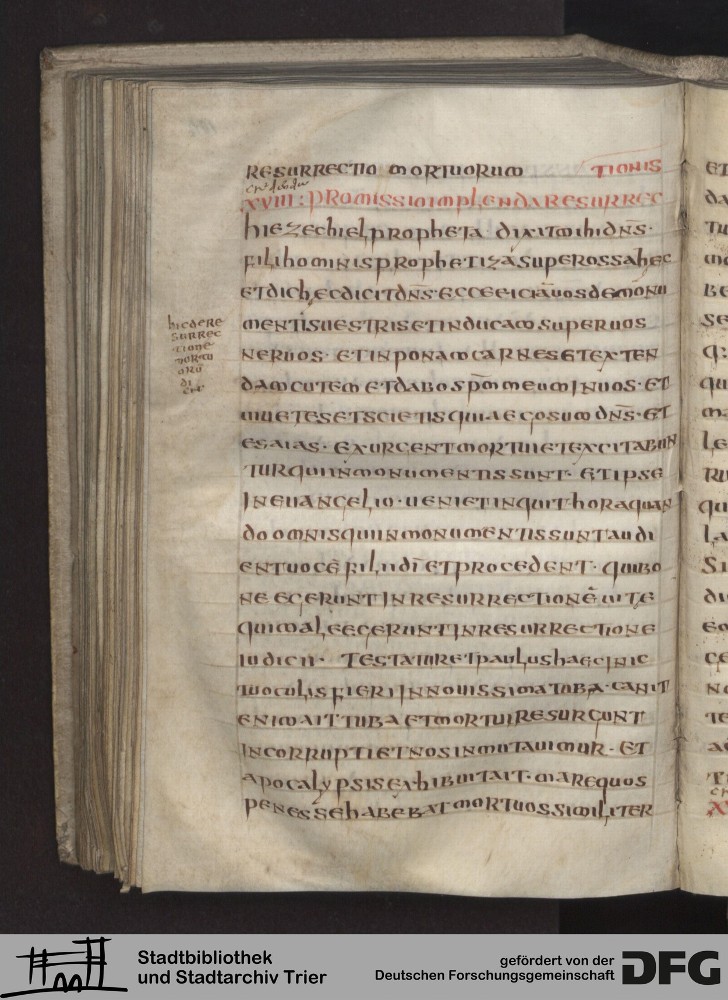 RESURRECTIO MORTUORUM TIONIS
XVIII: PROMISSIO IMPLENDA RESURREC
HIEZECHIEL PROPHETA DIXIT MIHI DN̄S·
FILI HOMINIS PROPHETIZA SUPER OSSA HEC
ET DIC HEC DICIT DN̄S· ECCE EICIĀ UOS DE MONU
MENTIS UESTRIS ET INDUCAM SUPER UOS
NERUOS· ET INPONAM CARNES ET EXTEN
DAM CUTEM ET DABO SPM̄ MEUM IN UOS· ET
UIUETES ET SCIETIS QUIA EGO SUM DN̄S· ET
ESAIAS· EXURGENT MORTUI ET EXCITABUN
TUR QUI IN MONUMENTIS SUNT· ET IPSE
IN EUANGELIO· UENIET INQUIT HORA QUAN
DO OMNIS QUI IN MONUMENTIS SUNT AUDI
ENT UOCĒ FILII DĪ ET PROCEDENT· QUI BO
NE EGERUNT IN RESURRECTIONĒ UITE
QUI MALE EGERUNT IN RESURRECTIONE
IUDICII· TESTATUR ET PAULUS HAEC IN IC
TU OCULIS FIERI IN NOUISSIMA TUBA· CANIT
ENIM AIT TUBA ET MORTUI RESURGUNT
INCORRUPTI ET NOS INMUTAUIMUR· ET
APOCALYPSIS EXHIBUIT AIT· MARE QUOS
PENES SE HABEBAT MORTUOS SIMILITER
HIC DE RE
SURREC
TIONE
MORTU
ORŪ
DI
CIT
Stadtbibliothek
und Stadtarchiv Trier
gefördert von der
Deutschen Forschungsgemeinschaft
DFG